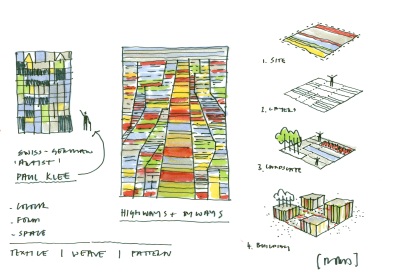 SWISS-GERMAN
'ARTIST'
PAUL KLEE
- COLOUR
- FORM
- SPACE
TEXTILE | WEAVE | PATTERN
HIGHWAYS + BYWAYS
1. SITE
2. LAYERS
3. LANDSCAPE
4. BUILDING